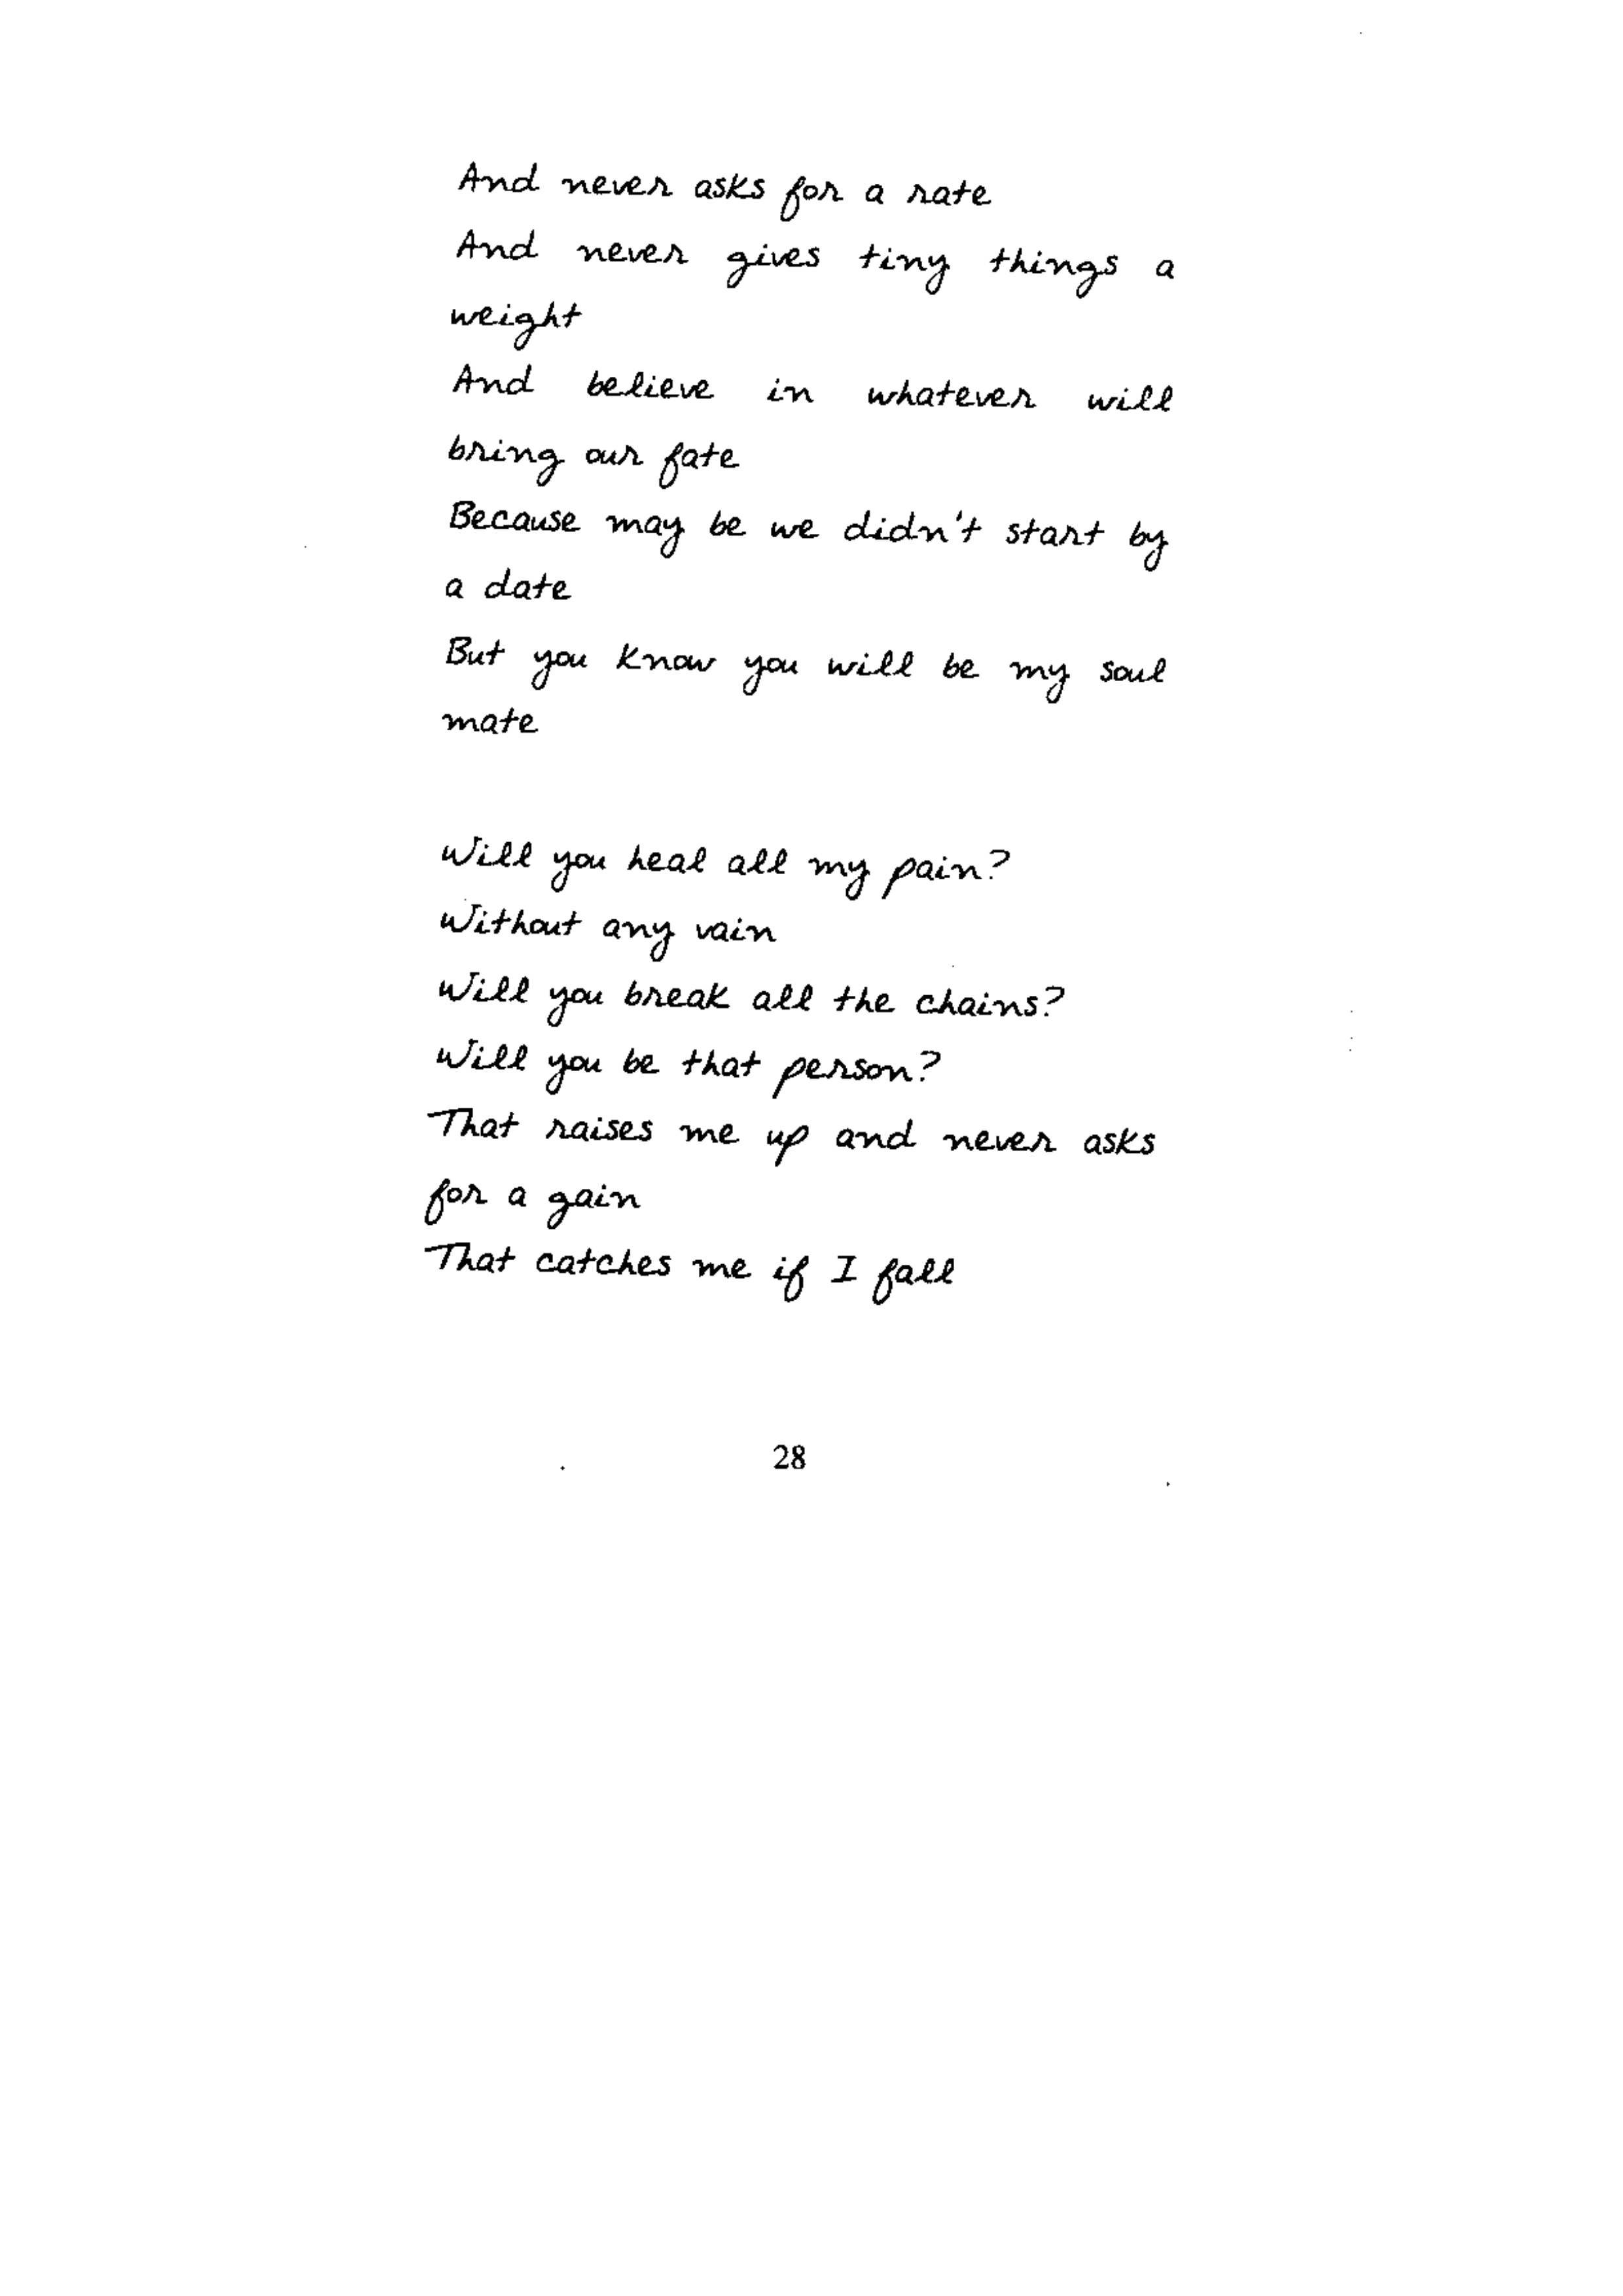 And never asks for a rate
And never gives tiny things a
weight
And believe in whatever will
bring our fate
Because may be we didn't start by
a date
But you know you will be my soul
mate
Will you heal all my pain?
Without any vain
Will you break all the chains?
Will you be that person?
That raises me up and never asks
for a gain
That catches me if I fall
28